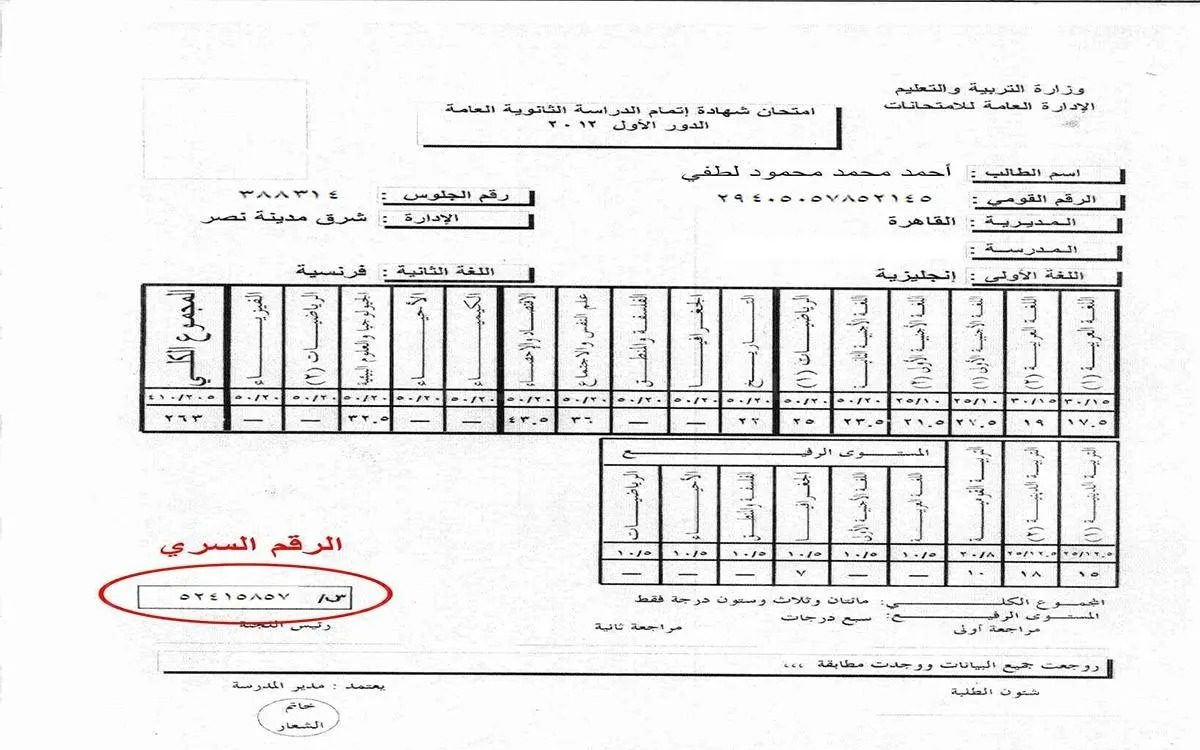 وزارة التربية والتعليم
الإدارة العامة للامتحانات
امتحان شهادة إتمام الدراسة الثانوية العامة
الدور الأول ٢٠١٢
اسم الطالب : أحمد محمد محمود لطفي
الرقم القومي : ٢٩٤٠٥٠٥٧٨٥٢١٤٥
رقم الجلوس : ٣٨٨٣١٤
المديرية : القاهرة
الإدارة : شرق مدينة نصر
المدرسة :
اللغة الأولى : إنجليزية
اللغة الثانية : فرنسية
اللغة العربية (١) اللغة العربية (٢) اللغة الأجنبية الأولى (١) اللغة الأجنبية الأولى (٢) اللغة الأجنبية الثانية الرياضيات (١) التاريخ الجغرافيا الفلسفة والمنطق علم النفس والاجتماع الاقتصاد والإحصاء الكيمياء الأحياء الجيولوجيا والعلوم البيئية الرياضيات (٢) الفيزياء المجموع الكلي
٣٠/١٥ ٣٠/١٥ ٢٥/١٠ ٢٥/١٠ ٥٠/٢٠ ٥٠/٢٠ ٥٠/٢٠ ٥٠/٢٠ ٥٠/٢٠ ٥٠/٢٠ ٥٠/٢٠ ٥٠/٢٠ ٥٠/٢٠ ٥٠/٢٠ ٥٠/٢٠ ٥٠/٢٠ ٤١٠/٢٠٥
١٧.٥ ١٩ ٢١.٥ ٢٣.٥ ٢٥ ٢٢ — — ٣٦ ٤٣.٥ — — ٣٢.٥ — — ٢٦٣
المستوى الرفيع
التربية الدينية (١) التربية الدينية (٢) التربية القومية اللغة العربية اللغة الأجنبية الأولى الجغرافيا الفلسفة والمنطق الأحياء الرياضيات
٢٥/١٢.٥ ٢٥/١٢.٥ ٢٠/٨ ١٠/٥ ١٠/٥ ١٠/٥ ١٠/٥ ١٠/٥ ١٠/٥
١٥ ١٨ ١٠ — — ٧ — — —
الرقم السري
س/ ٥٢٤١٥٨٥٧
المجموع الكلي: مائتان وثلاث وستون درجة فقط
المستوى الرفيع: سبع درجات
مراجعة أولى
مراجعة ثانية
رئيس اللجنة
روجعت جميع البيانات ووجدت مطابقة ،،،
شئون الطلبة
يعتمد : مدير المدرسة
خاتم
الشعار